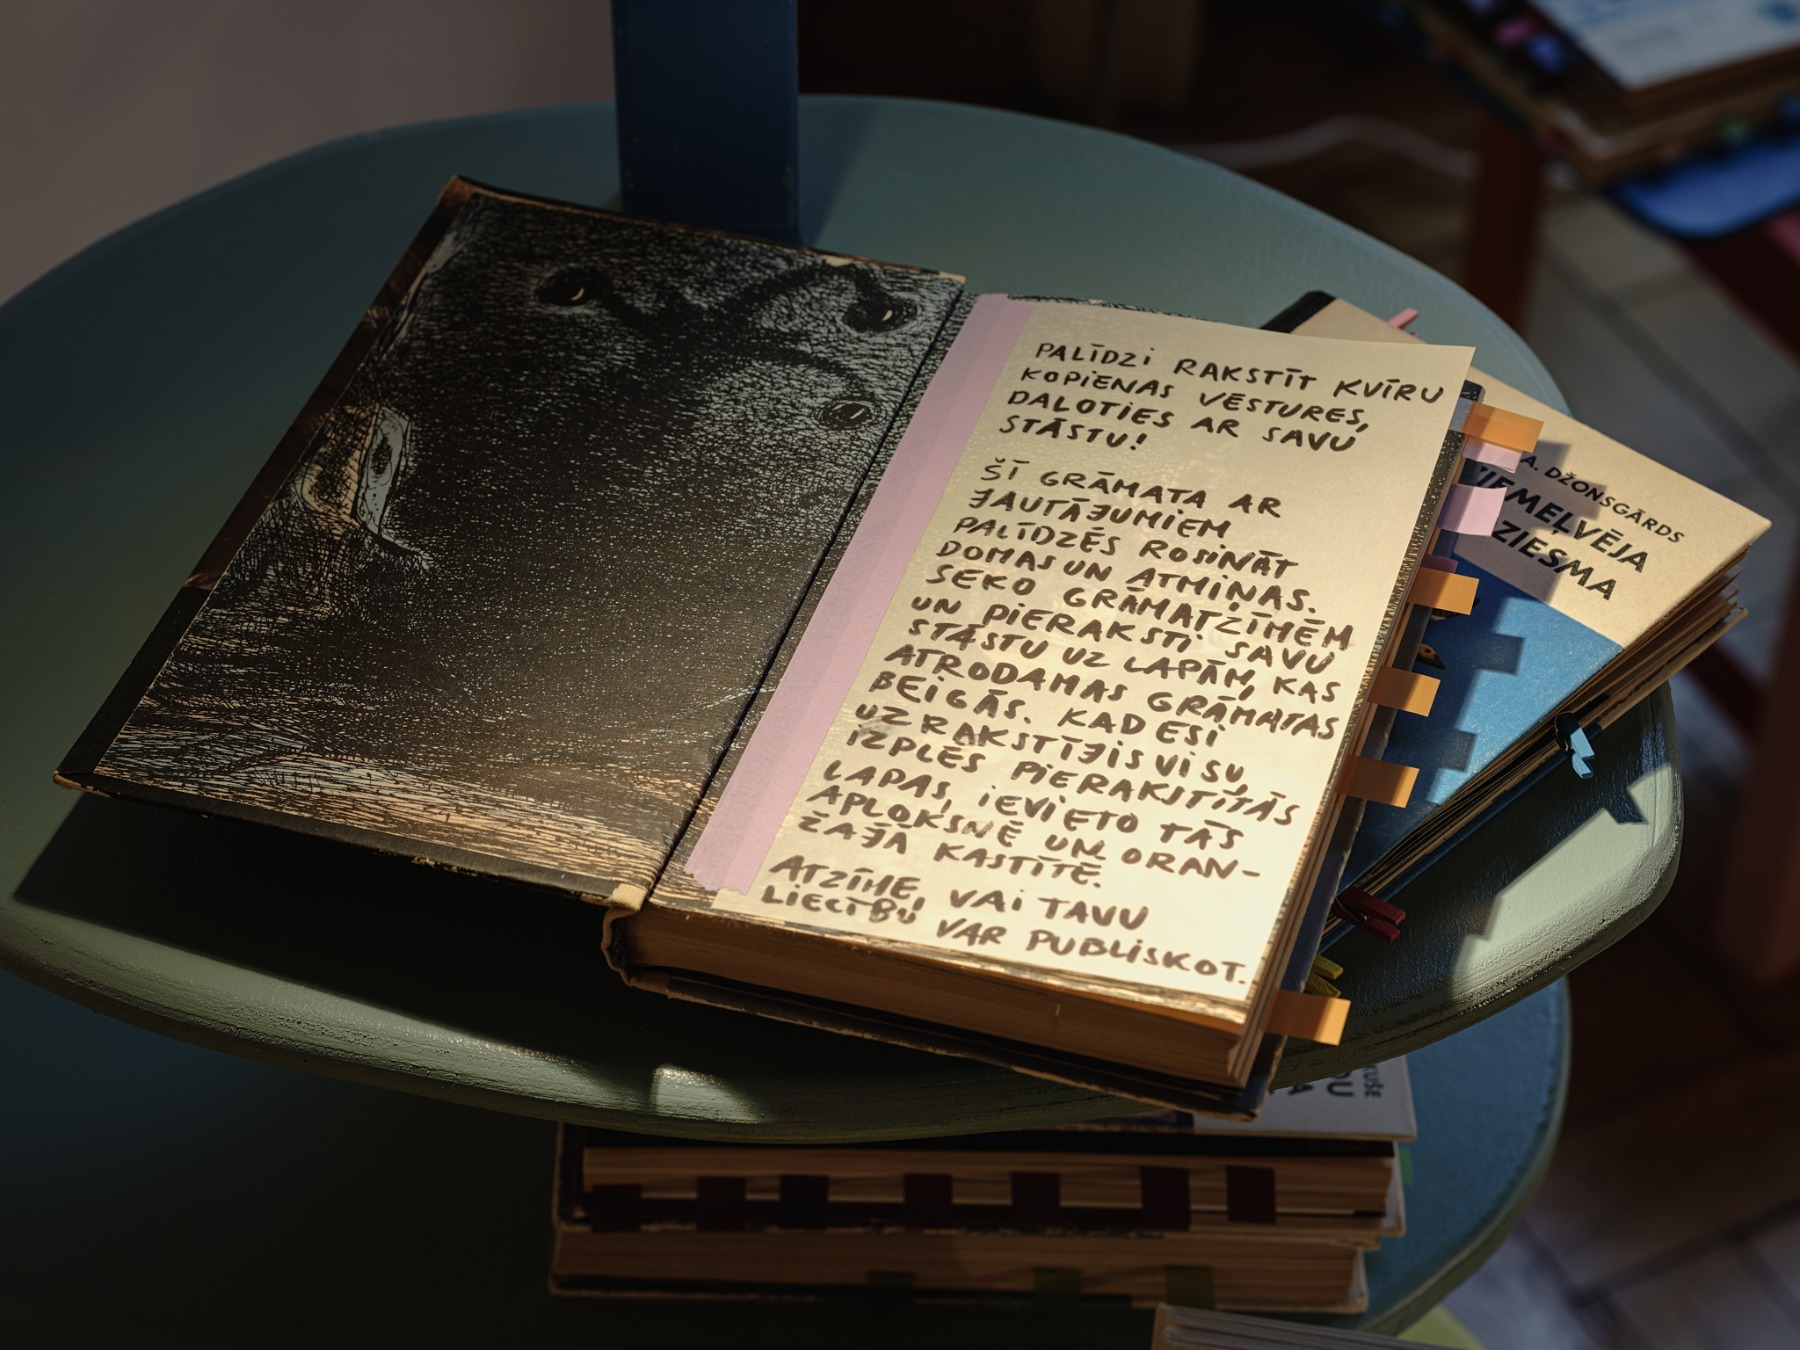 PALĪDZI RAKSTĪT KVĪRU
KOPIENAS VĒSTURES,
DALOTIES AR SAVU
STĀSTU!
ŠĪ GRĀMATA AR
JAUTĀJUMIEM
PALĪDZĒS ROSINĀT
DOMAS UN ATMIŅAS.
SEKO GRĀMATZĪMĒM
UN PIERAKSTI SAVU
STĀSTU UZ LAPĀM, KAS
ATRODAMAS GRĀMATAS
BEIGĀS. KAD ESI
UZRAKSTĪJIS VISU,
IZPLĒS PIERAKSTĪTĀS
LAPAS, IEVIETO TĀS
APLOKSNĒ UN ORAN-
ŽAJĀ KASTĪTĒ.
ATZĪMĒ, VAI TAVU
LIECĪBU VAR PUBLISKOT.
A. DŽONSGĀRDS
IEMEĻVĒJA
DZIESMA